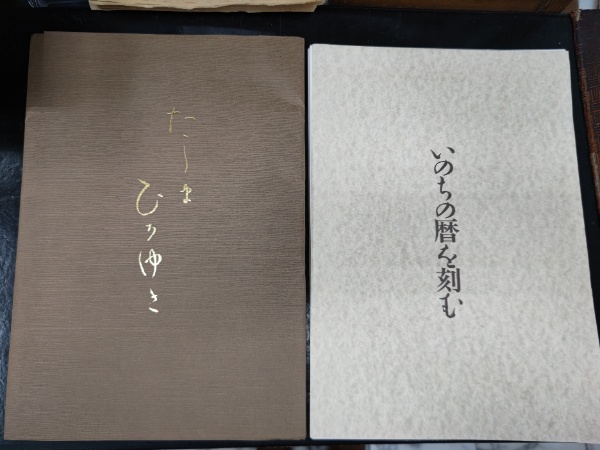 たしま
ひろゆき
いのちの暦を刻む